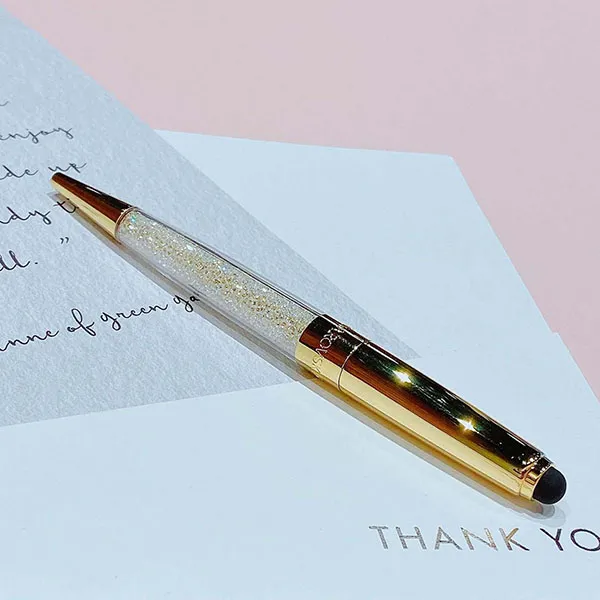 enjoy
de up
dy to
ll."
nne of green ga
ROVS
THANK YO